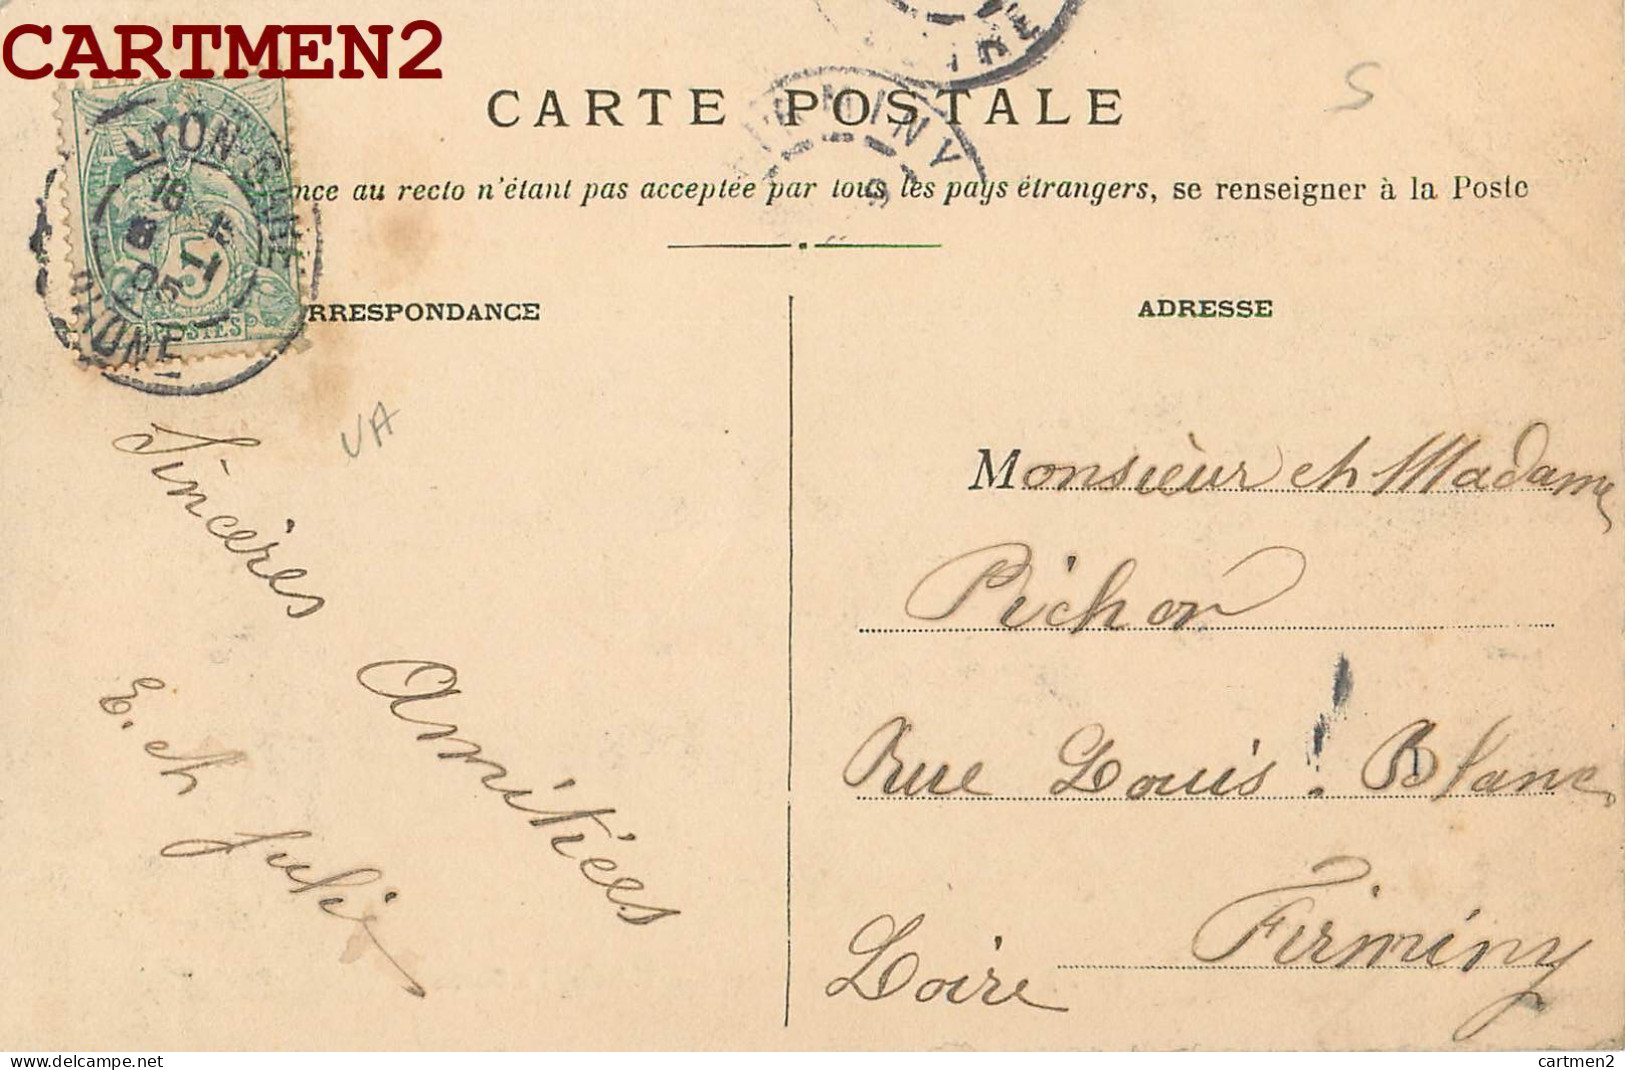 CARTMEN2
CARTE POSTALE
nce au recto n'étant pas acceptée par tous les pays étrangers, se renseigner à la Poste
RRESPONDANCE
ADRESSE
LYON-GARE
18
RHONE
5
POSTES
FIRMINY
S
VA
Sincères
Amitiées
E. et Julie
Monsieur et Madame
Pichon
Rue Louis Blanc
Firminy
Loire
delcampe.net
cartmen2